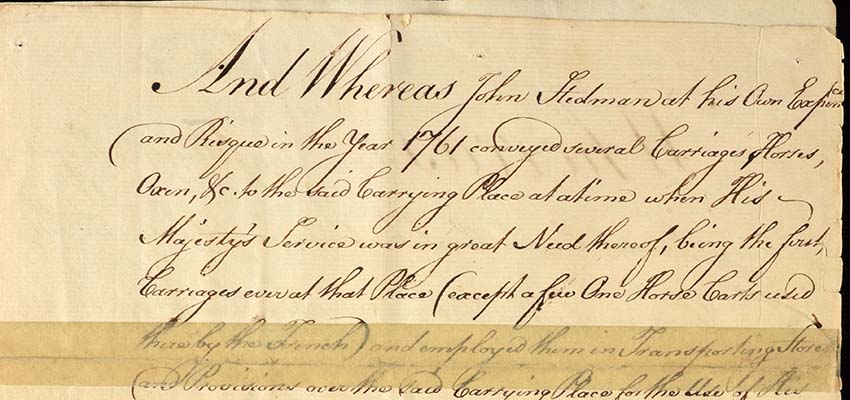 And Whereas John Stedman at his Own Expence
and Risque in the Year 1761 conveyed several Carriages, Horses,
Oxen, &c. to the said Carrying Place at a time when His
Majesty's Service was in great Need thereof, being the first
Carriages ever at that Place (except a few One Horse Carts used
there by the French) and employed them in Transporting Stores
and Provisions over the said Carrying Place for the Use of His